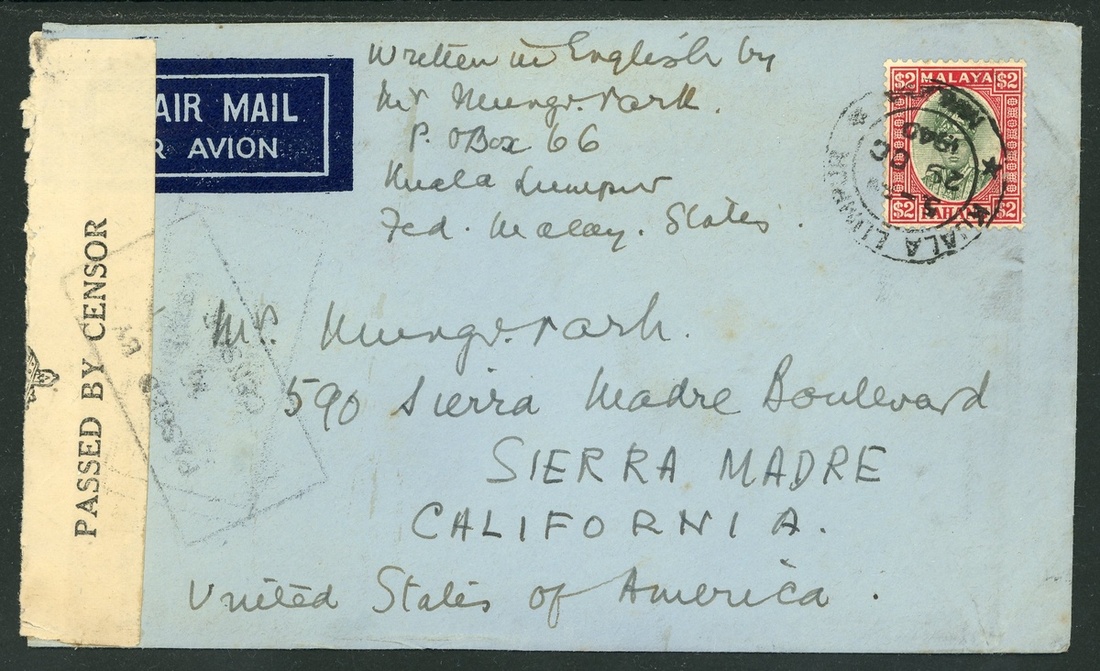 Written in English by
Mr Mungo. Park.
P. O Box 66
Kuala Lumpur
Fed. Malay. States.
AIR MAIL
R AVION
$2 MALAYA $2
$2 PAHANG $2
KUALA LUMPUR
1940
PASSED BY CENSOR
Mr. Mungo. Park.
590 Sierra Madre Boulevard
SIERRA MADRE
CALIFORNIA.
United States of America.